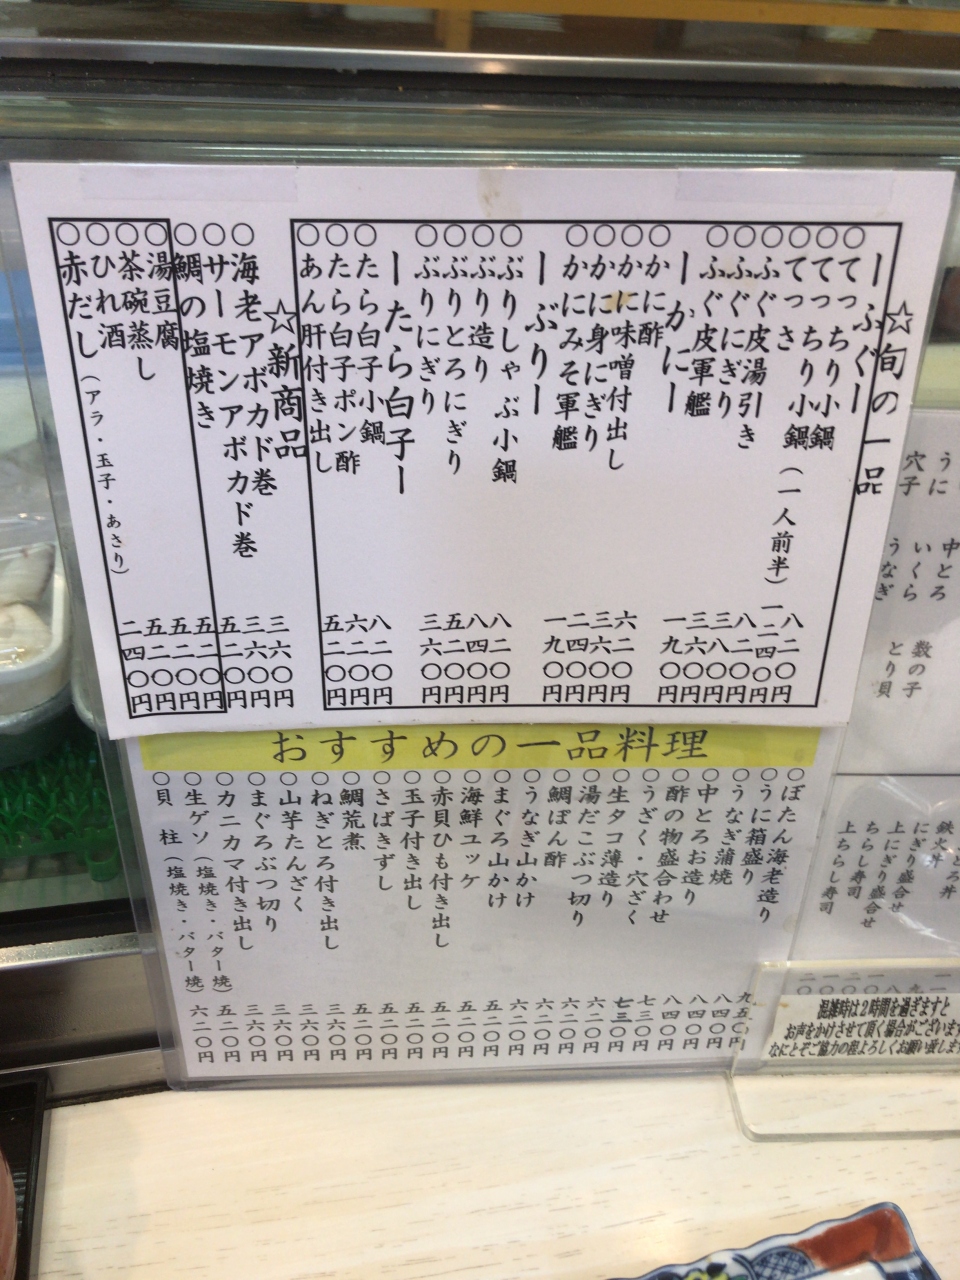 ☆旬の一品
ーふぐー
〇てっちり小鍋 八二〇円
〇てっちり小鍋(一人前半) 一二四〇円
〇てっさ 八二〇円
〇ふぐ皮湯引き 三八〇円
〇ふぐにぎり 三六〇円
〇ふぐ皮軍艦 一九〇円
ーかにー
〇かに酢 六二〇円
〇かに味噌付出し 三六〇円
〇かに身にぎり 二四〇円
〇かにみそ軍艦 一九〇円
ーぶりー
〇ぶりしゃぶ小鍋 八二〇円
〇ぶり造り 八四〇円
〇ぶりとろにぎり 五二〇円
〇ぶりにぎり 三六〇円
ーたら白子ー
〇たら白子小鍋 八二〇円
〇たら白子ポン酢 六二〇円
〇あん肝付き出し 五二〇円
☆新商品
〇海老アボカド巻 三六〇円
〇サーモンアボカド巻 三六〇円
〇鯛の塩焼き 五二〇円
〇湯豆腐 五二〇円
〇茶碗蒸し 五二〇円
〇ひれ酒 五二〇円
〇赤だし(アラ・玉子・あさり) 二四〇円
おすすめの一品料理
〇ぼたん海老造り 九五〇円
〇うに箱盛り 八四〇円
〇うなぎ蒲焼 八四〇円
〇中とろお造り 八四〇円
〇酢の物盛合わせ 七三〇円
〇うざく・穴ざく 七三〇円
〇生タコ薄造り 六二〇円
〇湯だこぶつ切り 六二〇円
〇鯛ぽん酢 六二〇円
〇うなぎ山かけ 六二〇円
〇まぐろ山かけ 五二〇円
〇海鮮ユッケ 五二〇円
〇赤貝ひも付き出し 五二〇円
〇玉子付き出し 五二〇円
〇さばきずし 五二〇円
〇鯛荒煮 五二〇円
〇ねぎとろ付き出し 三六〇円
〇山芋たんざく 三六〇円
〇まぐろぶつ切り 三六〇円
〇カニカマ付き出し 三六〇円
〇生ゲソ(塩焼き・バター焼) 五二〇円
〇貝柱(塩焼き・バター焼) 六二〇円
うに
穴子
中とろ
いくら
うなぎ
数の子
とり貝
鉄火丼
にぎり盛合せ
上にぎり盛合せ
ちらし寿司
上ちらし寿司
混雑時は2時間を過ぎますと
お声をかけさせて頂く場合がございます
なにとぞご協力の程よろしくお願い致します